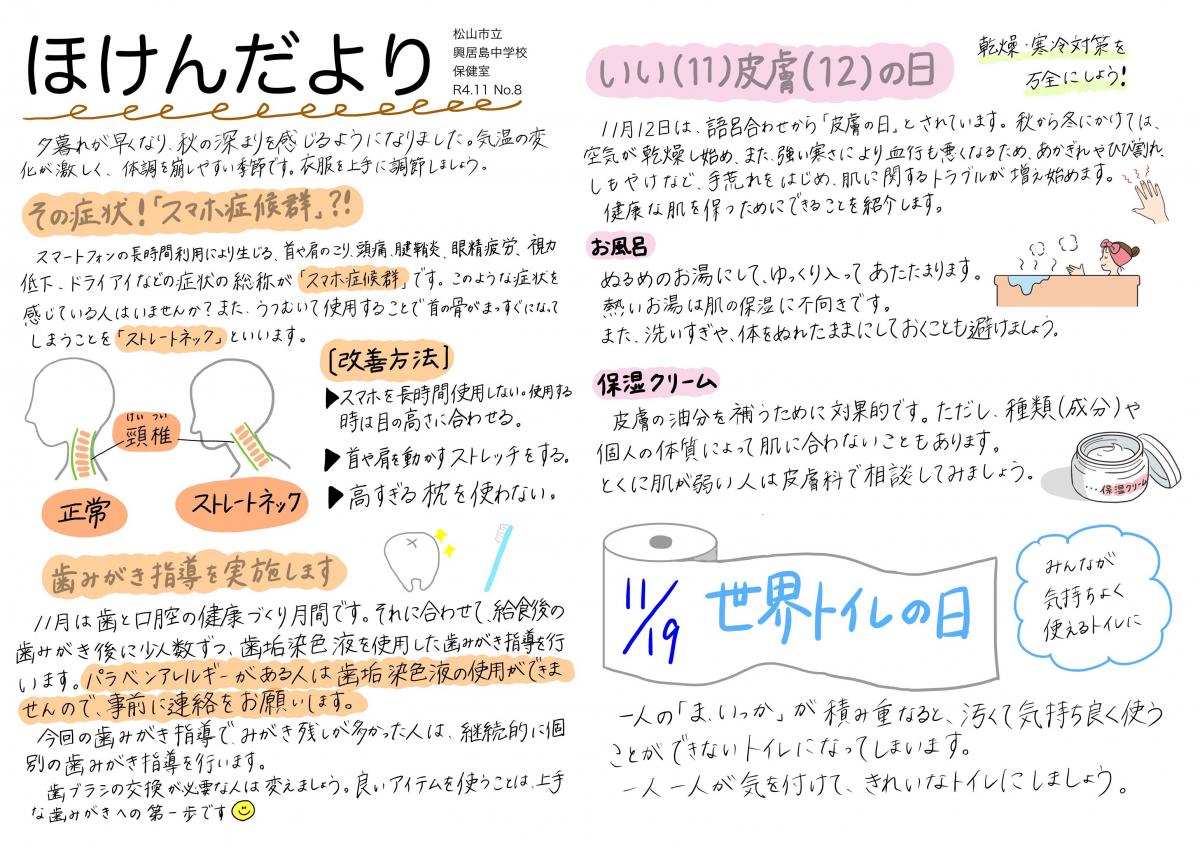 ほけんだより
松山市立
興居島中学校
保健室
R4.11 No.8
夕暮れが早くなり、秋の深まりを感じるようになりました。気温の変
化が激しく、体調を崩しやすい季節です。衣服を上手に調節しましょう。
その症状!「スマホ症候群」?!
スマートフォンの長時間利用により生じる、首や肩のこり、頭痛、腱鞘炎、眼精疲労、視力
低下、ドライアイなどの症状の総称が「スマホ症候群」です。このような症状を
感じている人はいませんか?また、うつむいて使用することで首の骨がまっすぐになって
しまうことを「ストレートネック」といいます。
[改善方法]
▶スマホを長時間使用しない。使用する
時は目の高さに合わせる。
▶首や肩を動かすストレッチをする。
▶高すぎる枕を使わない。
けいつい
頸椎
正常
ストレートネック
歯みがき指導を実施します
11月は歯と口腔の健康づくり月間です。それに合わせて、給食後の
歯みがき後に少人数ずつ、歯垢染色液を使用した歯みがき指導を行
います。パラベンアレルギーがある人は歯垢染色液の使用ができま
せんので、事前に連絡をお願いします。
今回の歯みがき指導で、みがき残しが多かった人は、継続的に個
別の歯みがき指導を行います。
歯ブラシの交換が必要な人は変えましょう。良いアイテムを使うことは、上手
な歯みがきへの第一歩です
いい(11)皮膚(12)の日
乾燥・寒冷対策を
万全にしよう!
11月12日は、語呂合わせから「皮膚の日」とされています。秋から冬にかけては、
空気が乾燥し始め、また、強い寒さにより血行も悪くなるため、あかぎれやひび割れ、
しもやけなど、手荒れをはじめ、肌に関するトラブルが増え始めます。
健康な肌を保つためにできることを紹介します。
お風呂
ぬるめのお湯にして、ゆっくり入ってあたたまります。
熱いお湯は肌の保湿に不向きです。
また、洗いすぎや、体をぬれたままにしておくことも避けましょう。
保湿クリーム
皮膚の油分を補うために効果的です。ただし、種類(成分)や
個人の体質によって肌に合わないこともあります。
とくに肌が弱い人は皮膚科で相談してみましょう。
…保湿クリーム
11/19 世界トイレの日
みんなが
気持ちよく
使えるトイレに
一人の「ま、いっか」が積み重なると、汚くて気持ち良く使う
ことができないトイレになってしまいます。
一人一人が気を付けて、きれいなトイレにしましょう。